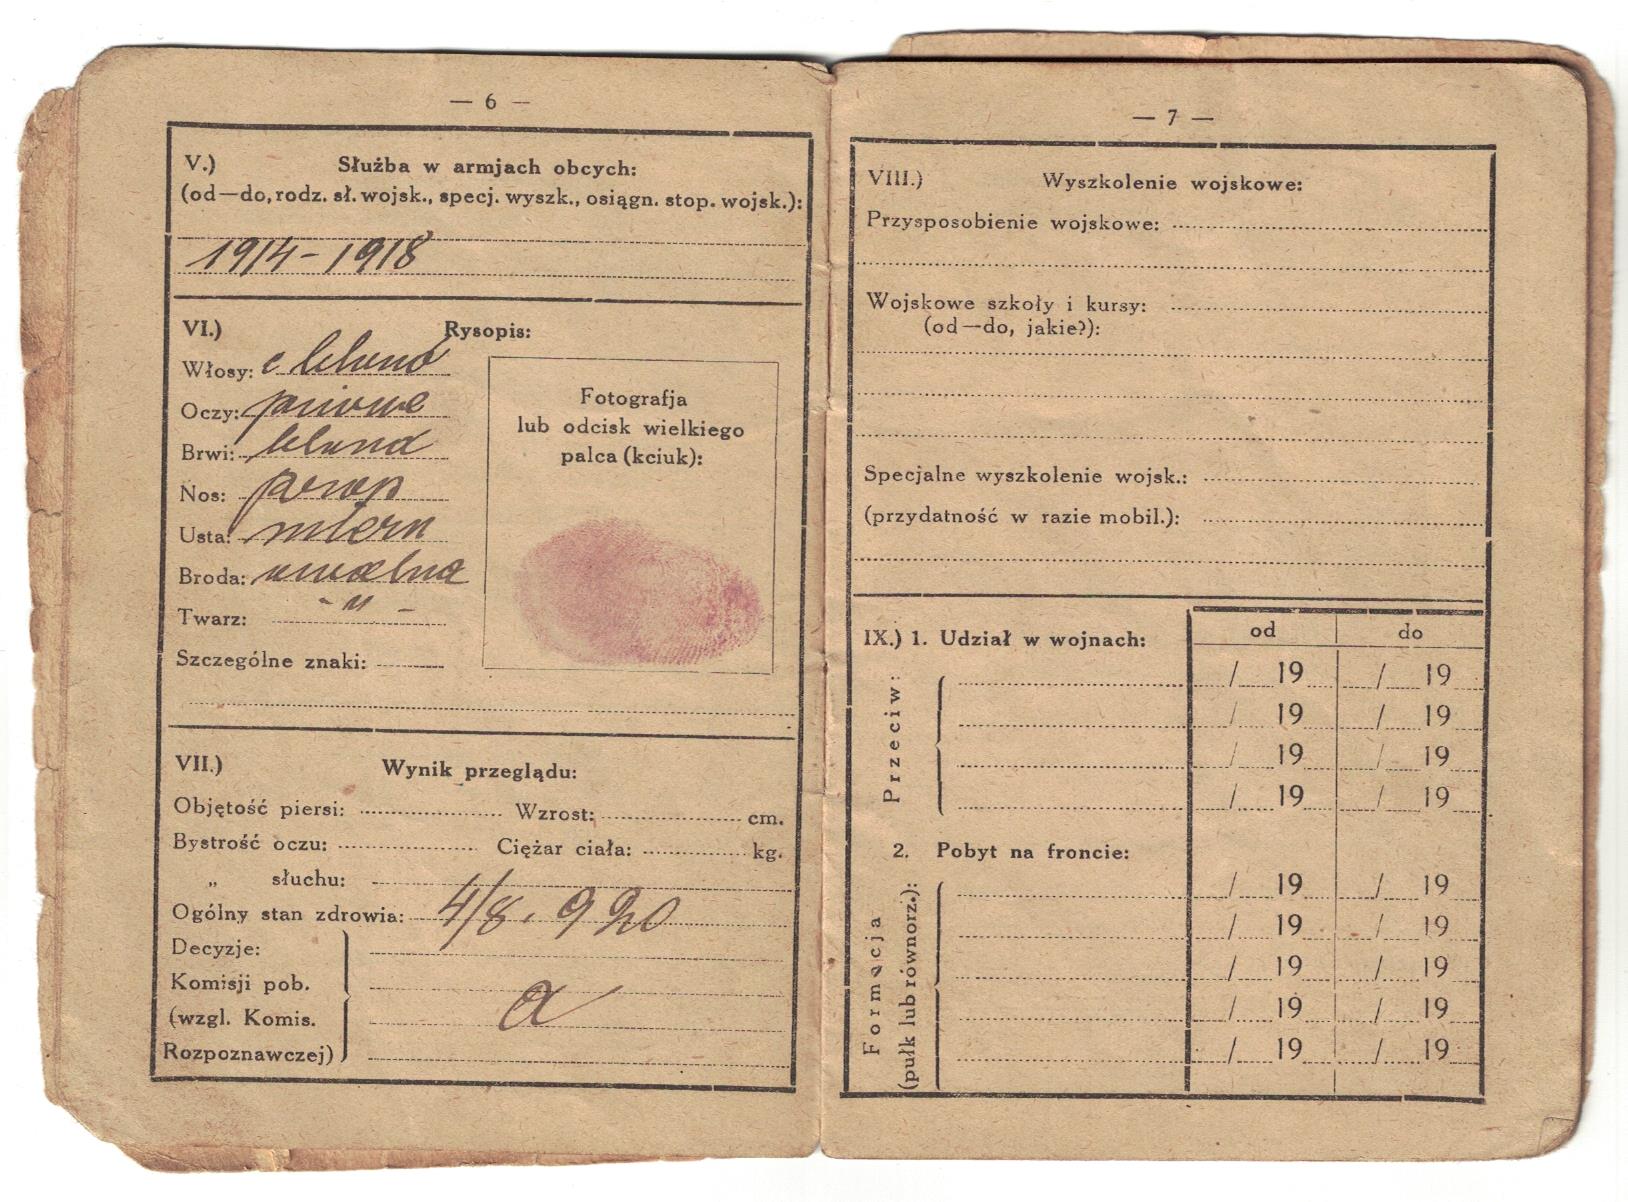 — 6 —
V.) Służba w armjach obcych:
(od—do, rodz. sł. wojsk., specj. wyszk., osiągn. stop. wojsk.):
1914-1918
VI.) Rysopis:
Włosy: c blond
Oczy: piwne
Brwi: blond
Nos: prop
Usta: miern
Broda: owalna
Twarz: -"-
Szczególne znaki:
Fotografja
lub odcisk wielkiego
palca (kciuk):
VII.) Wynik przeglądu:
Objętość piersi: Wzrost: cm.
Bystrość oczu: Ciężar ciała: kg.
„ słuchu:
Ogólny stan zdrowia: 4/8. 920
Decyzje:
Komisji pob.
(wzgl. Komis.
Rozpoznawczej)
a
— 7 —
VIII.) Wyszkolenie wojskowe:
Przysposobienie wojskowe:
Wojskowe szkoły i kursy:
(od—do, jakie?):
Specjalne wyszkolenie wojsk.:
(przydatność w razie mobil.):
IX.) 1. Udział w wojnach: od do
Przeciw:
/ 19 / 19
/ 19 / 19
/ 19 / 19
/ 19 / 19
2. Pobyt na froncie:
Formacja
(pułk lub równorz.):
/ 19 / 19
/ 19 / 19
/ 19 / 19
/ 19 / 19
/ 19 / 19